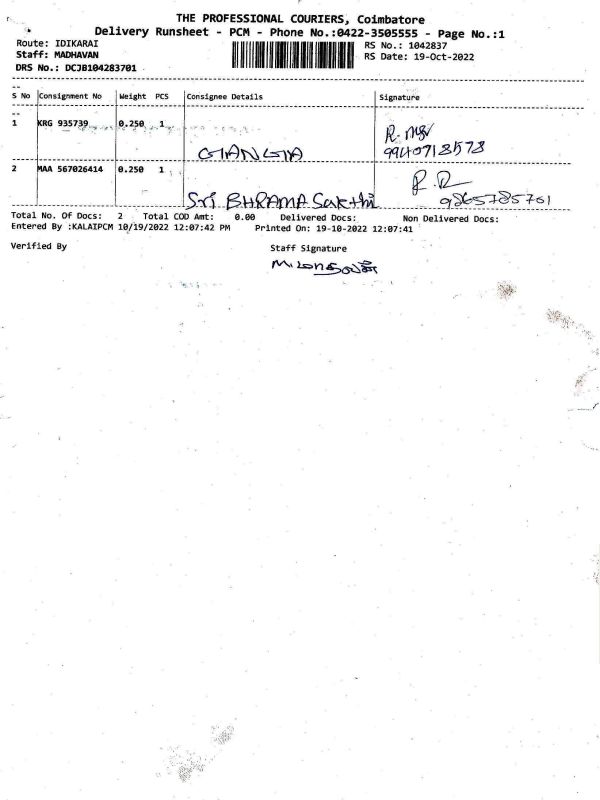 THE PROFESSIONAL COURIERS, Coimbatore
Delivery Runsheet - PCM - Phone No.:0422-3505555 - Page No.:1
Route: IDIKARAI
RS No.: 1042837
Staff: MADHAVAN
RS Date: 19-Oct-2022
DRS No.: DCJB104283701
S No Consignment No Weight PCS Consignee Details Signature
1 KRG 935739 0.250 1
GANGA
R. mgr
9940718578
2 MAA 567026414 0.250 1
Sri BHRAMA Sakthi
R R
9865785761
Total No. Of Docs: 2 Total COD Amt: 0.00 Delivered Docs: Non Delivered Docs:
Entered By :KALAIPCM 10/19/2022 12:07:42 PM Printed On: 19-10-2022 12:07:41
Verified By Staff Signature